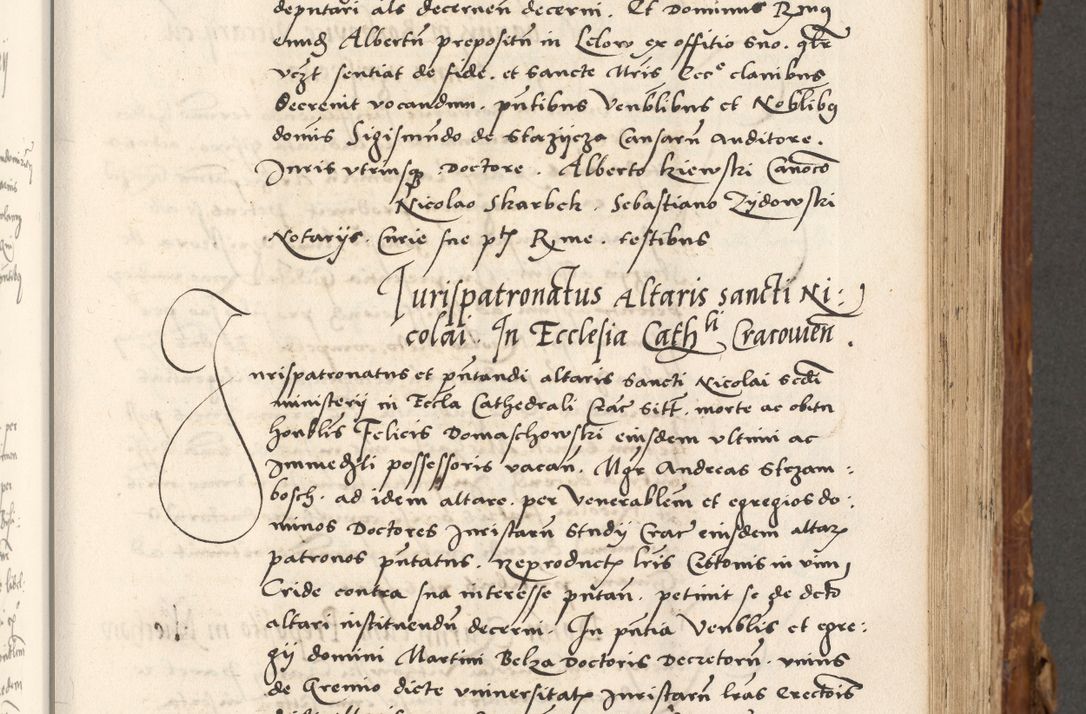 deputari als decernen̄ decerni. Et Dominus R̄mꝰ
eiusdē Albertū prepositū in Lelow ex offitio suo. q̄tr
vczt sentiat de fide. et sancte M̄ris Eccᵉ clauibus
decreuit vocandum. pn̄tibus Venblibus et Noblibꝰ
domīs Sigismundo de Stazijcza Causarū Auditore.
Iuris vtriusqꝫ Doctore. Alberto Kiewski Canoco
Nicolao Skarbek. Sebastiano Zydowski
Notarijs. Curie sue pt̄ R̄me. testibus
Iurispatronatus Altaris sancti Ni:
colai. In Ecclesia Cathˡⁱ Cracouien̄.
Iurispatronatus et pn̄tandi altaris Sancti Nicolai sedi
ministerij in Eccla Cathedrali Crac̄ sitt̄. morte ac obitu
honblis Felicis Domaschowski eiusdem vltimi ac
immedti possessoris vacan̄. Mgr̄ Andreas Strzam:
bosch. ad idem altare. per Venerablem et egregios do:
minos Doctores Iuristarū Studij Crac̄ eiusdem altarꝭ
patronos pn̄tatus. Reproductꝭ lris Citationis in vim
Cride contra sua interesse putan̄. petiuit se de dcto
altari instituendū decerni. In pn̄tia Venblis et egre:
gij domini Martini Belza Doctoris Decretorū. vnius
de Gremio dicte vniuersitatꝭ Iuristarū lras Erectōis